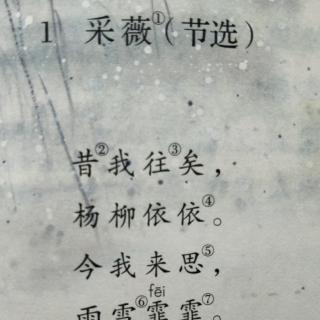 1 采薇①(节选)
昔②我往③矣，
杨柳依依④。
今我来思⑤，
fēi
雨雪⑥霏霏⑦。